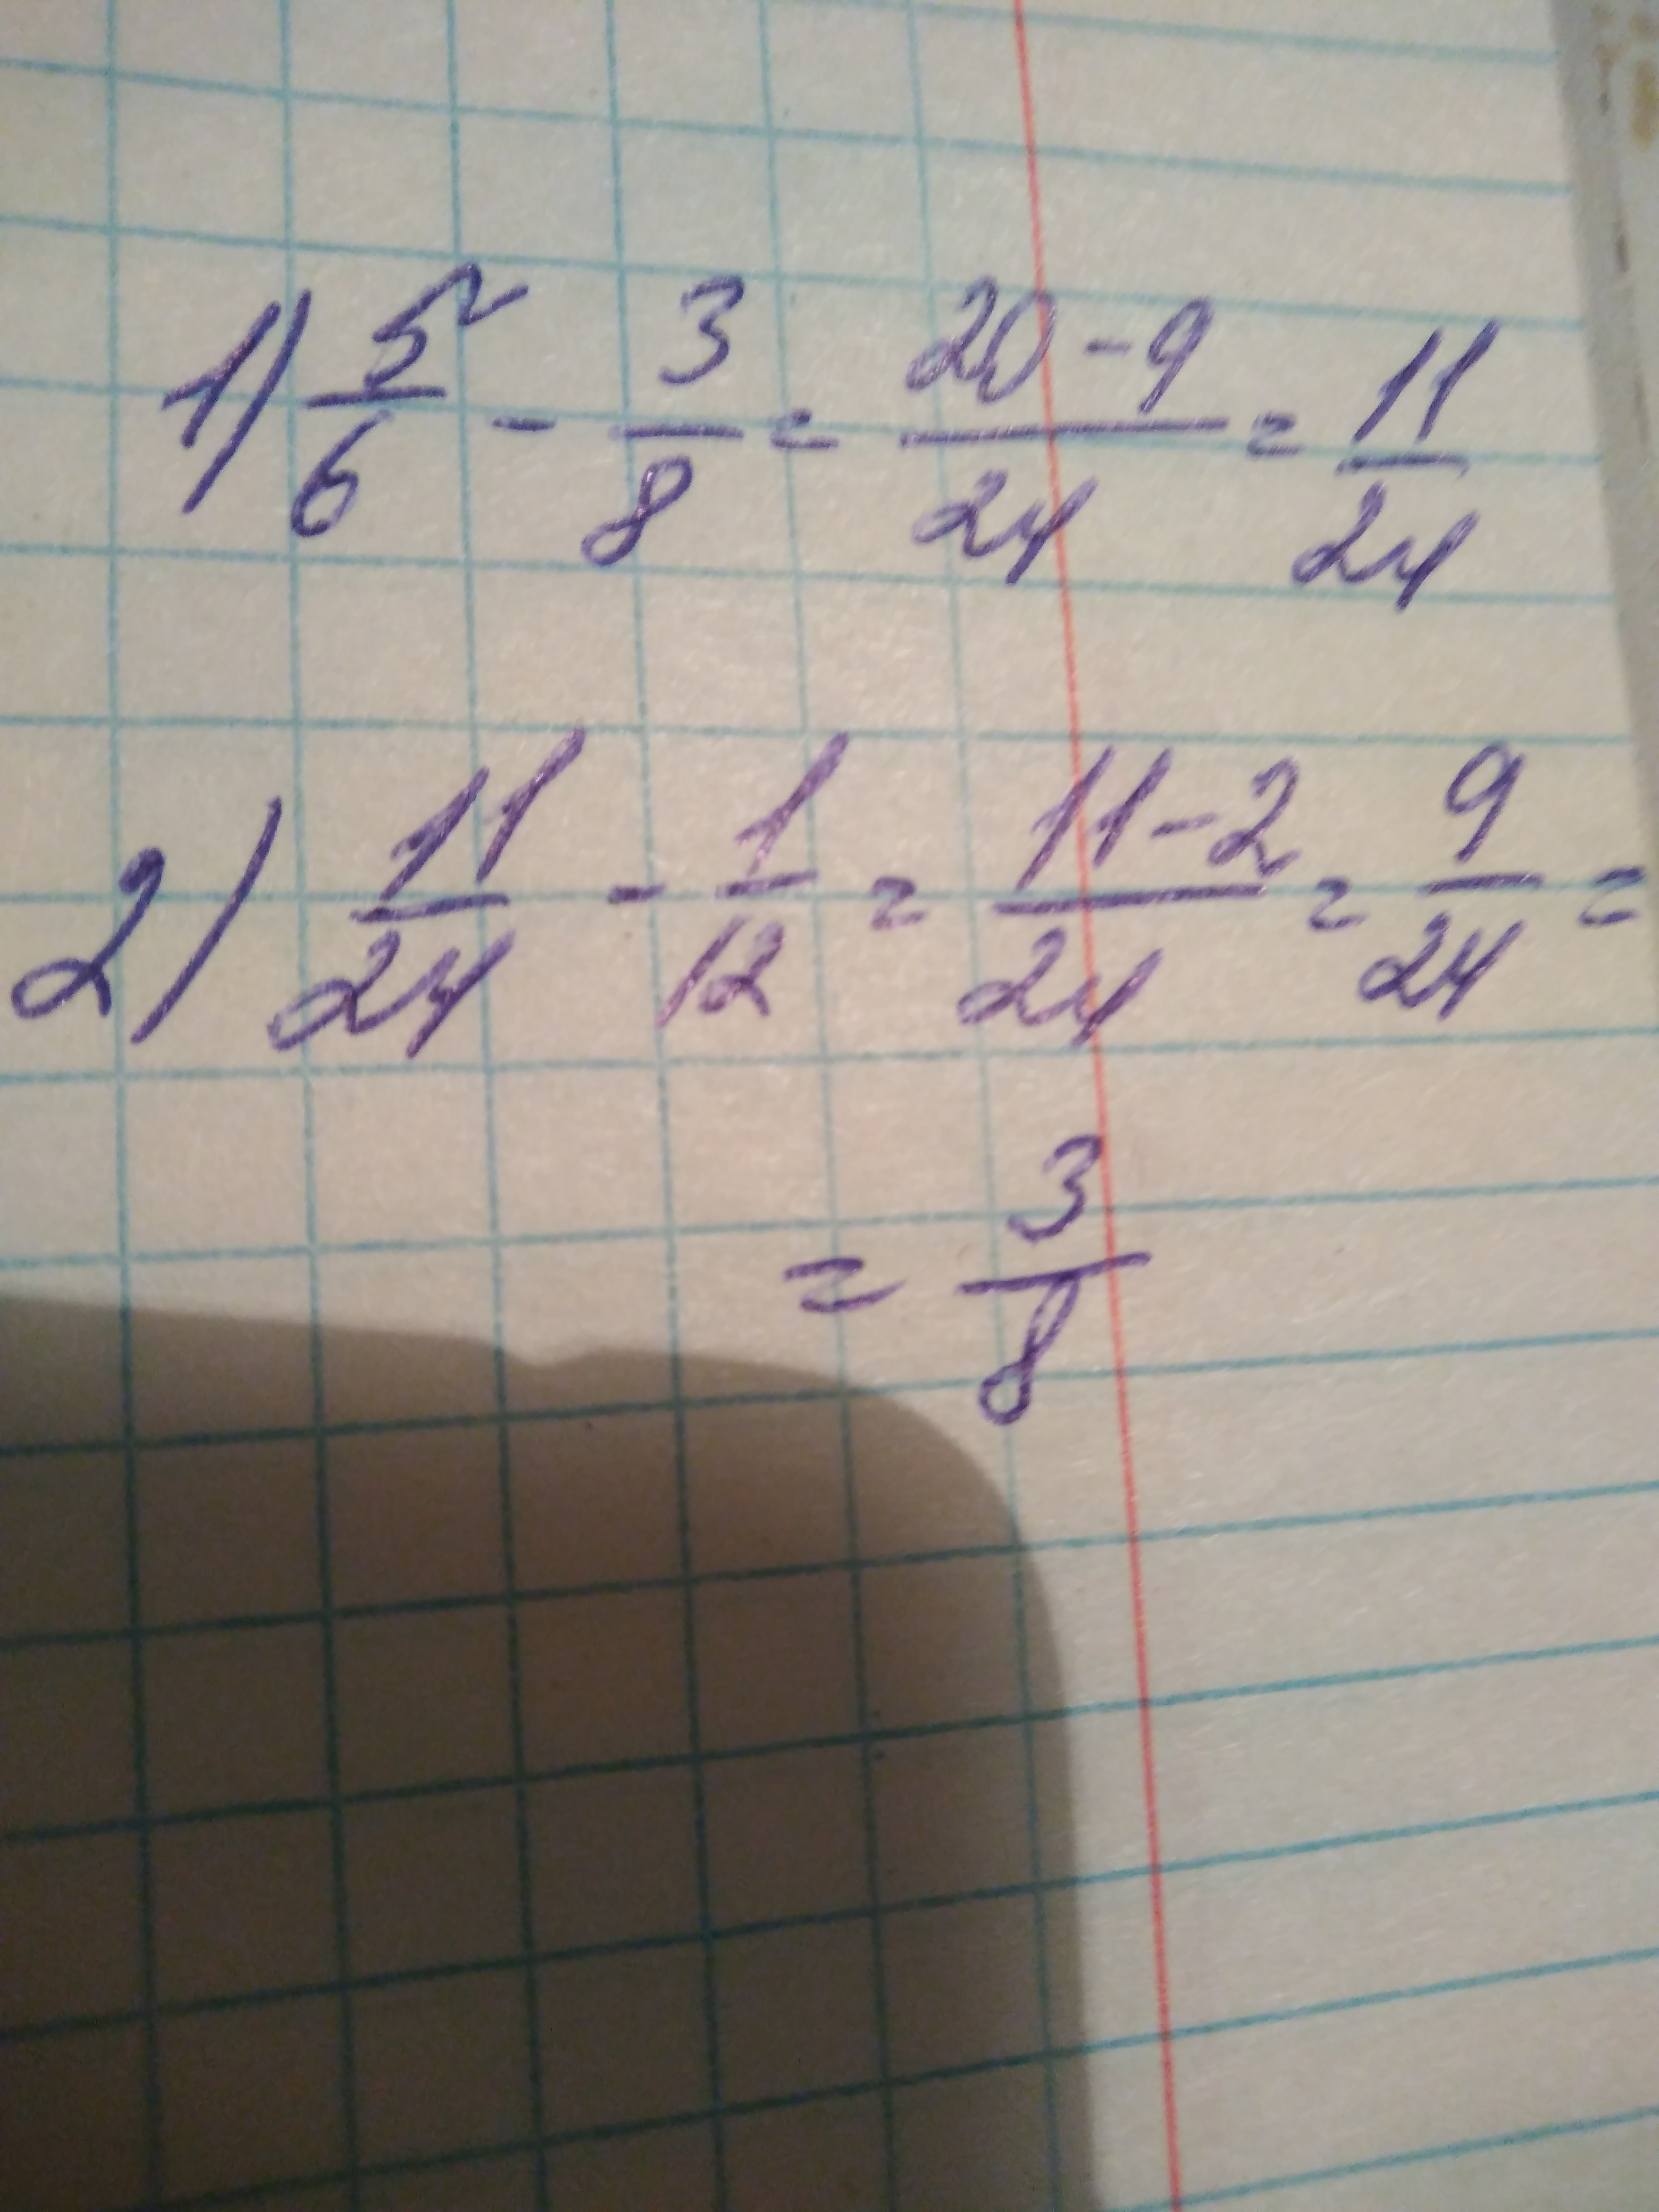 1) 5/6 - 3/8 = 20-9/24 = 11/24
2) 11/24 - 1/12 = 11-2/24 = 9/24 =
= 3/8